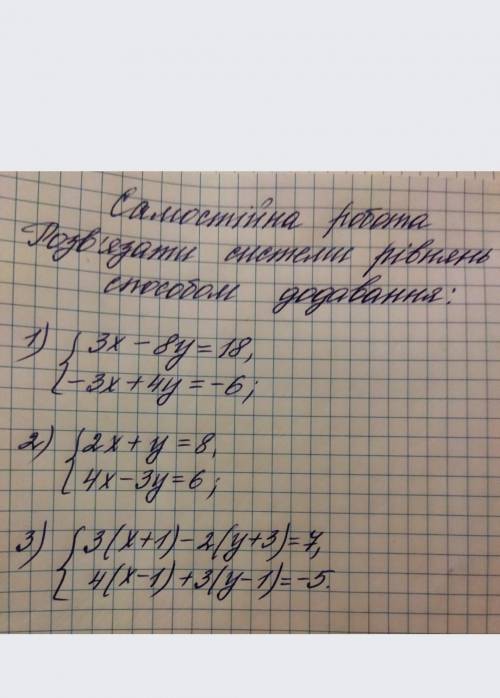 Самостійна робота
Розв'язати системи рівнянь
способом додавання:
1) { 3x - 8y = 18,
-3x + 4y = -6;
2) { 2x + y = 8,
4x - 3y = 6;
3) { 3(x+1) - 2(y+3) = 7,
4(x-1) + 3(y-1) = -5.